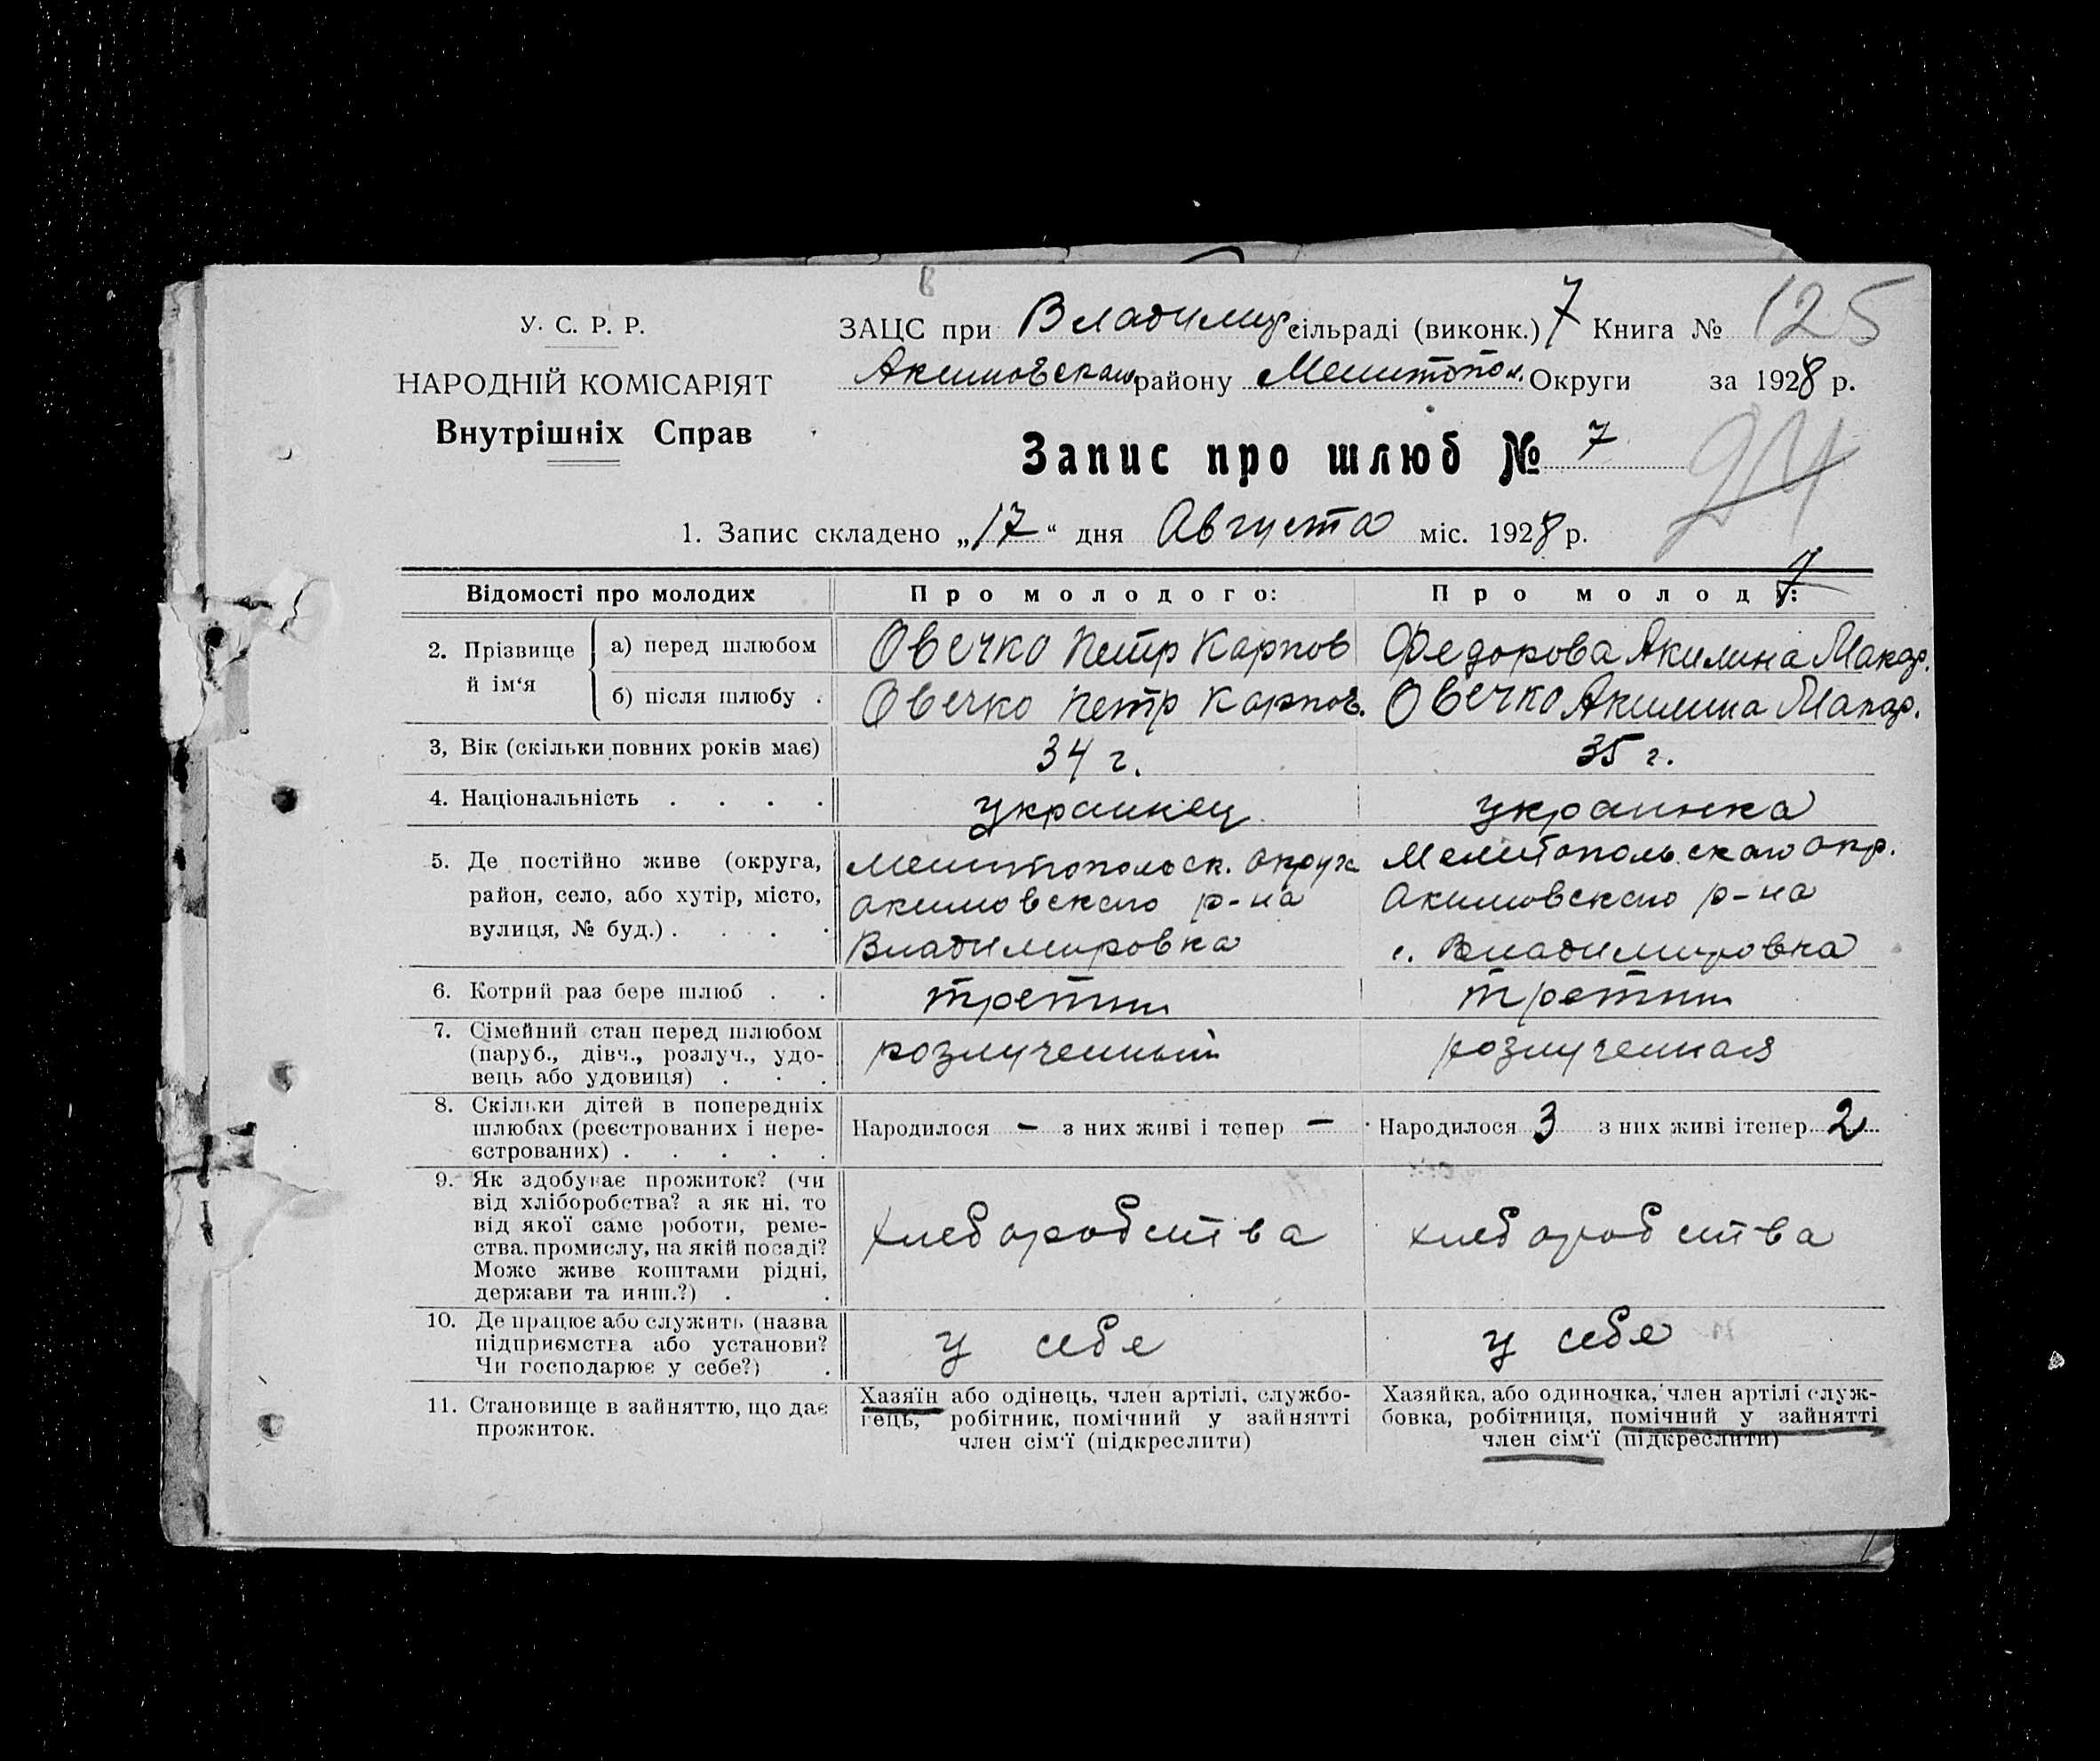 В
У. С. Р. Р.
НАРОДНІЙ КОМІСАРІЯТ
Внутрішніх Справ
ЗАЦС при Владимир сільраді (виконк.) 7 Книга № 125
Акимовского району Мелитопол. Округи за 1928 р.
Запис про шлюб № 7
24
1. Запис складено „17“ дня Августа міс. 1928 р.
7
Відомості про молодих Про молодого: Про молоду:
2. Прізвище й ім‘я
а) перед шлюбом Овечко Петр Карпов Федорова Акилина Макар.
б) після шлюбу . Овечко Петр Карпов. Овечко Акилина Макар.
3, Вік (скільки повних років має) 34 г. 35 г.
4. Національність . . . . украинец украинка
5. Де постійно живе (округа, Мелитопольск. округ Мелитопольского окр.
район, село, або хутір, місто, Акимовского р-на Акимовского р-на
вулиця, № буд.) . . . . Владимировка с. Владимировка
6. Котрий раз бере шлюб . . третий третий
7. Сімейний стан перед шлюбом
(паруб., дівч., розлуч., удо- розлученный розлученная
вець або удовиця) . . .
8. Скільки дітей в попередніх
шлюбах (реєстрованих і нере- Народилося – з них живі і тепер – Народилося 3 з них живі ітепер 2
єстрованих) . . . . .
9. Як здобуває прожиток? (чи
від хліборобства? а як ні, то
від якої саме роботи, реме-
ства, промислу, на якій посаді? хлеборобства хлеборобства
Може живе коштами рідні,
держави та инш.?) . .
10. Де працює або служить (назва
підприємства або установи? у себе у себе
Чи господарює у себе?) .
11. Становище в зайняттю, що дає
прожиток.
Хазяїн або одінець, член артілі, службо-
вець, робітник, помічний у зайнятті
член сім‘ї (підкреслити)
Хазяйка, або одиночка, член артілі служ-
бовка, робітниця, помічний у зайнятті
член сім‘ї (підкреслити)